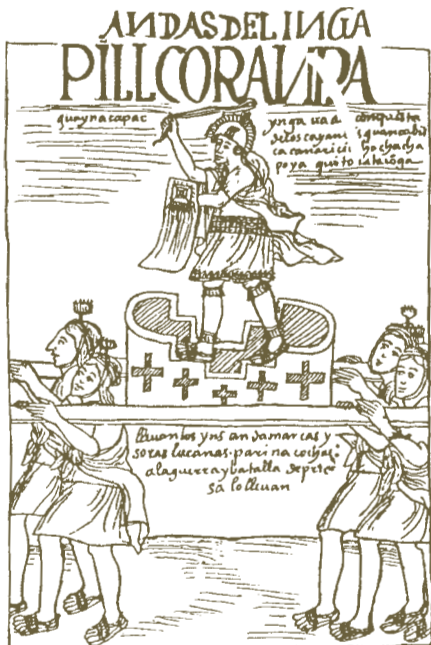 ANDAS DEL INGA
PILLCORANPA
guaynacapac
ynga ua a conquista
de los cayanbis guancabil
ca cañari cicho chacha
poya quito lataconga
llleuanlos yns andamarcas y
soras lucanas parinacochas
a la guerra y batalla de prie
sa lo lleuan